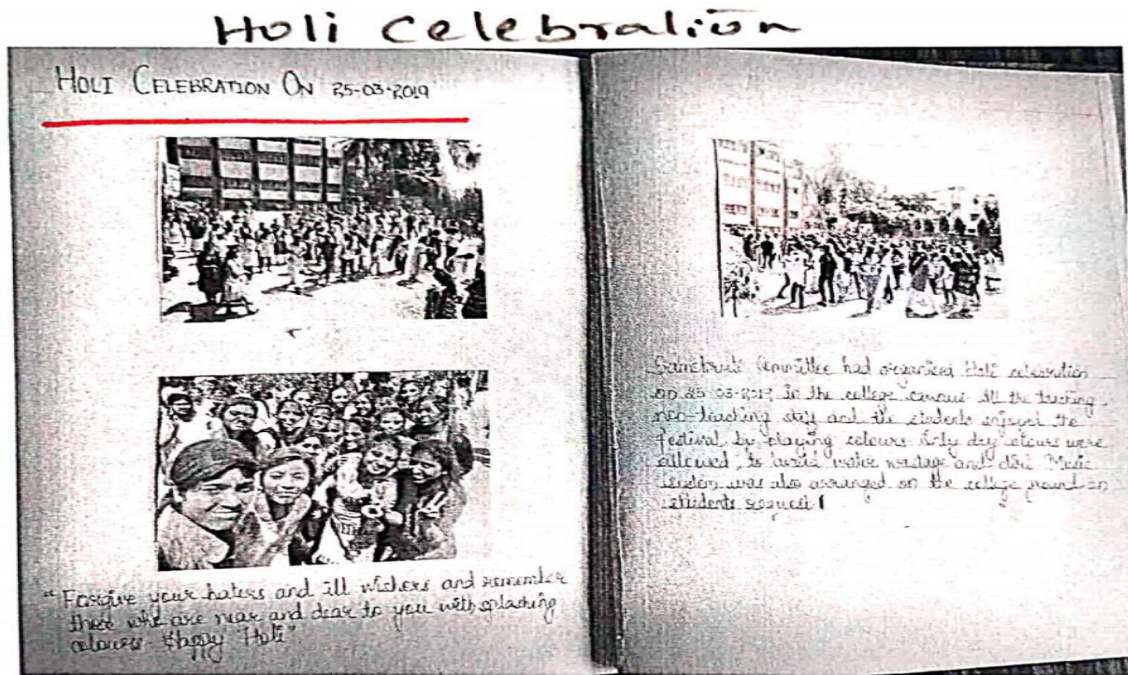 Holi Celebration
HOLI CELEBRATION ON 25-03-2019
"Forgive your haters and ill wishers and remember
those who are near and dear to you with splashing
colours. Happy Holi"
Committee had organised Holi celebration
on 25-03-2019 in the college campus. All the teaching,
non-teaching staff and the students enjoyed the
festival by playing colours. Only dry colours were
allowed to avoid water wastage and Music
was also arranged on the college ground on
students request